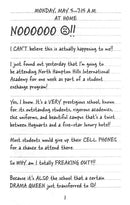 MONDAY, MAY 5—7:15 A.M.
AT HOME
NOOOOOO ☹!!
I CAN'T believe this is actually happening to me!!
I just found out yesterday that I'm going to
be attending North Hampton Hills International
Academy for one week as part of a student
exchange program!
Yes, I know. It's a VERY prestigious school, known
for its outstanding students, rigorous academics,
chic uniforms, and beautiful campus that's a twist
between Hogwarts and a five-star luxury hotel!
Most students would give up their CELL PHONES
for a chance to attend there.
So WHY am I totally FREAKING OUT?!!
Because it's ALSO the school that a certain
DRAMA QUEEN just transferred to ☹!